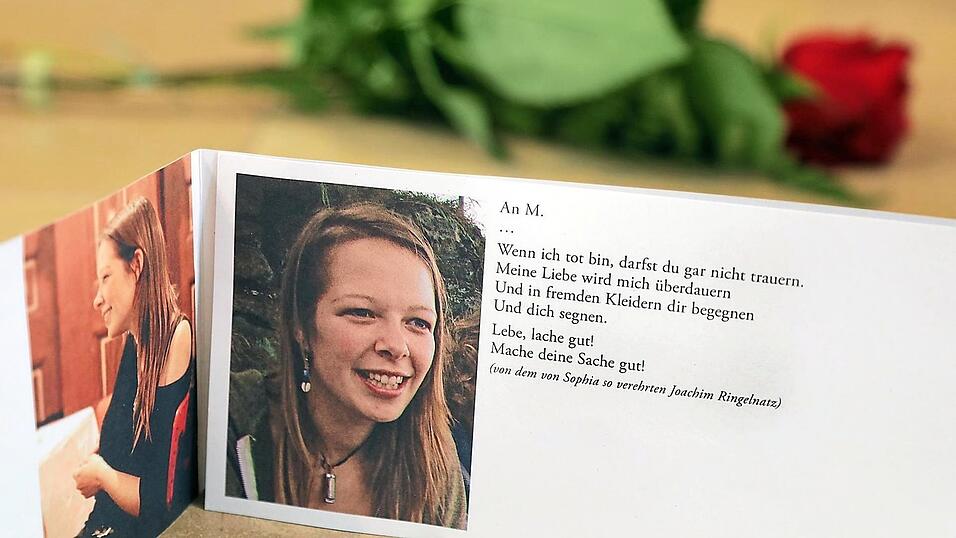 An M.
...
Wenn ich tot bin, darfst du gar nicht trauern.
Meine Liebe wird mich überdauern
Und in fremden Kleidern dir begegnen
Und dich segnen.
Lebe, lache gut!
Mache deine Sache gut!
(von dem von Sophia so verehrten Joachim Ringelnatz)